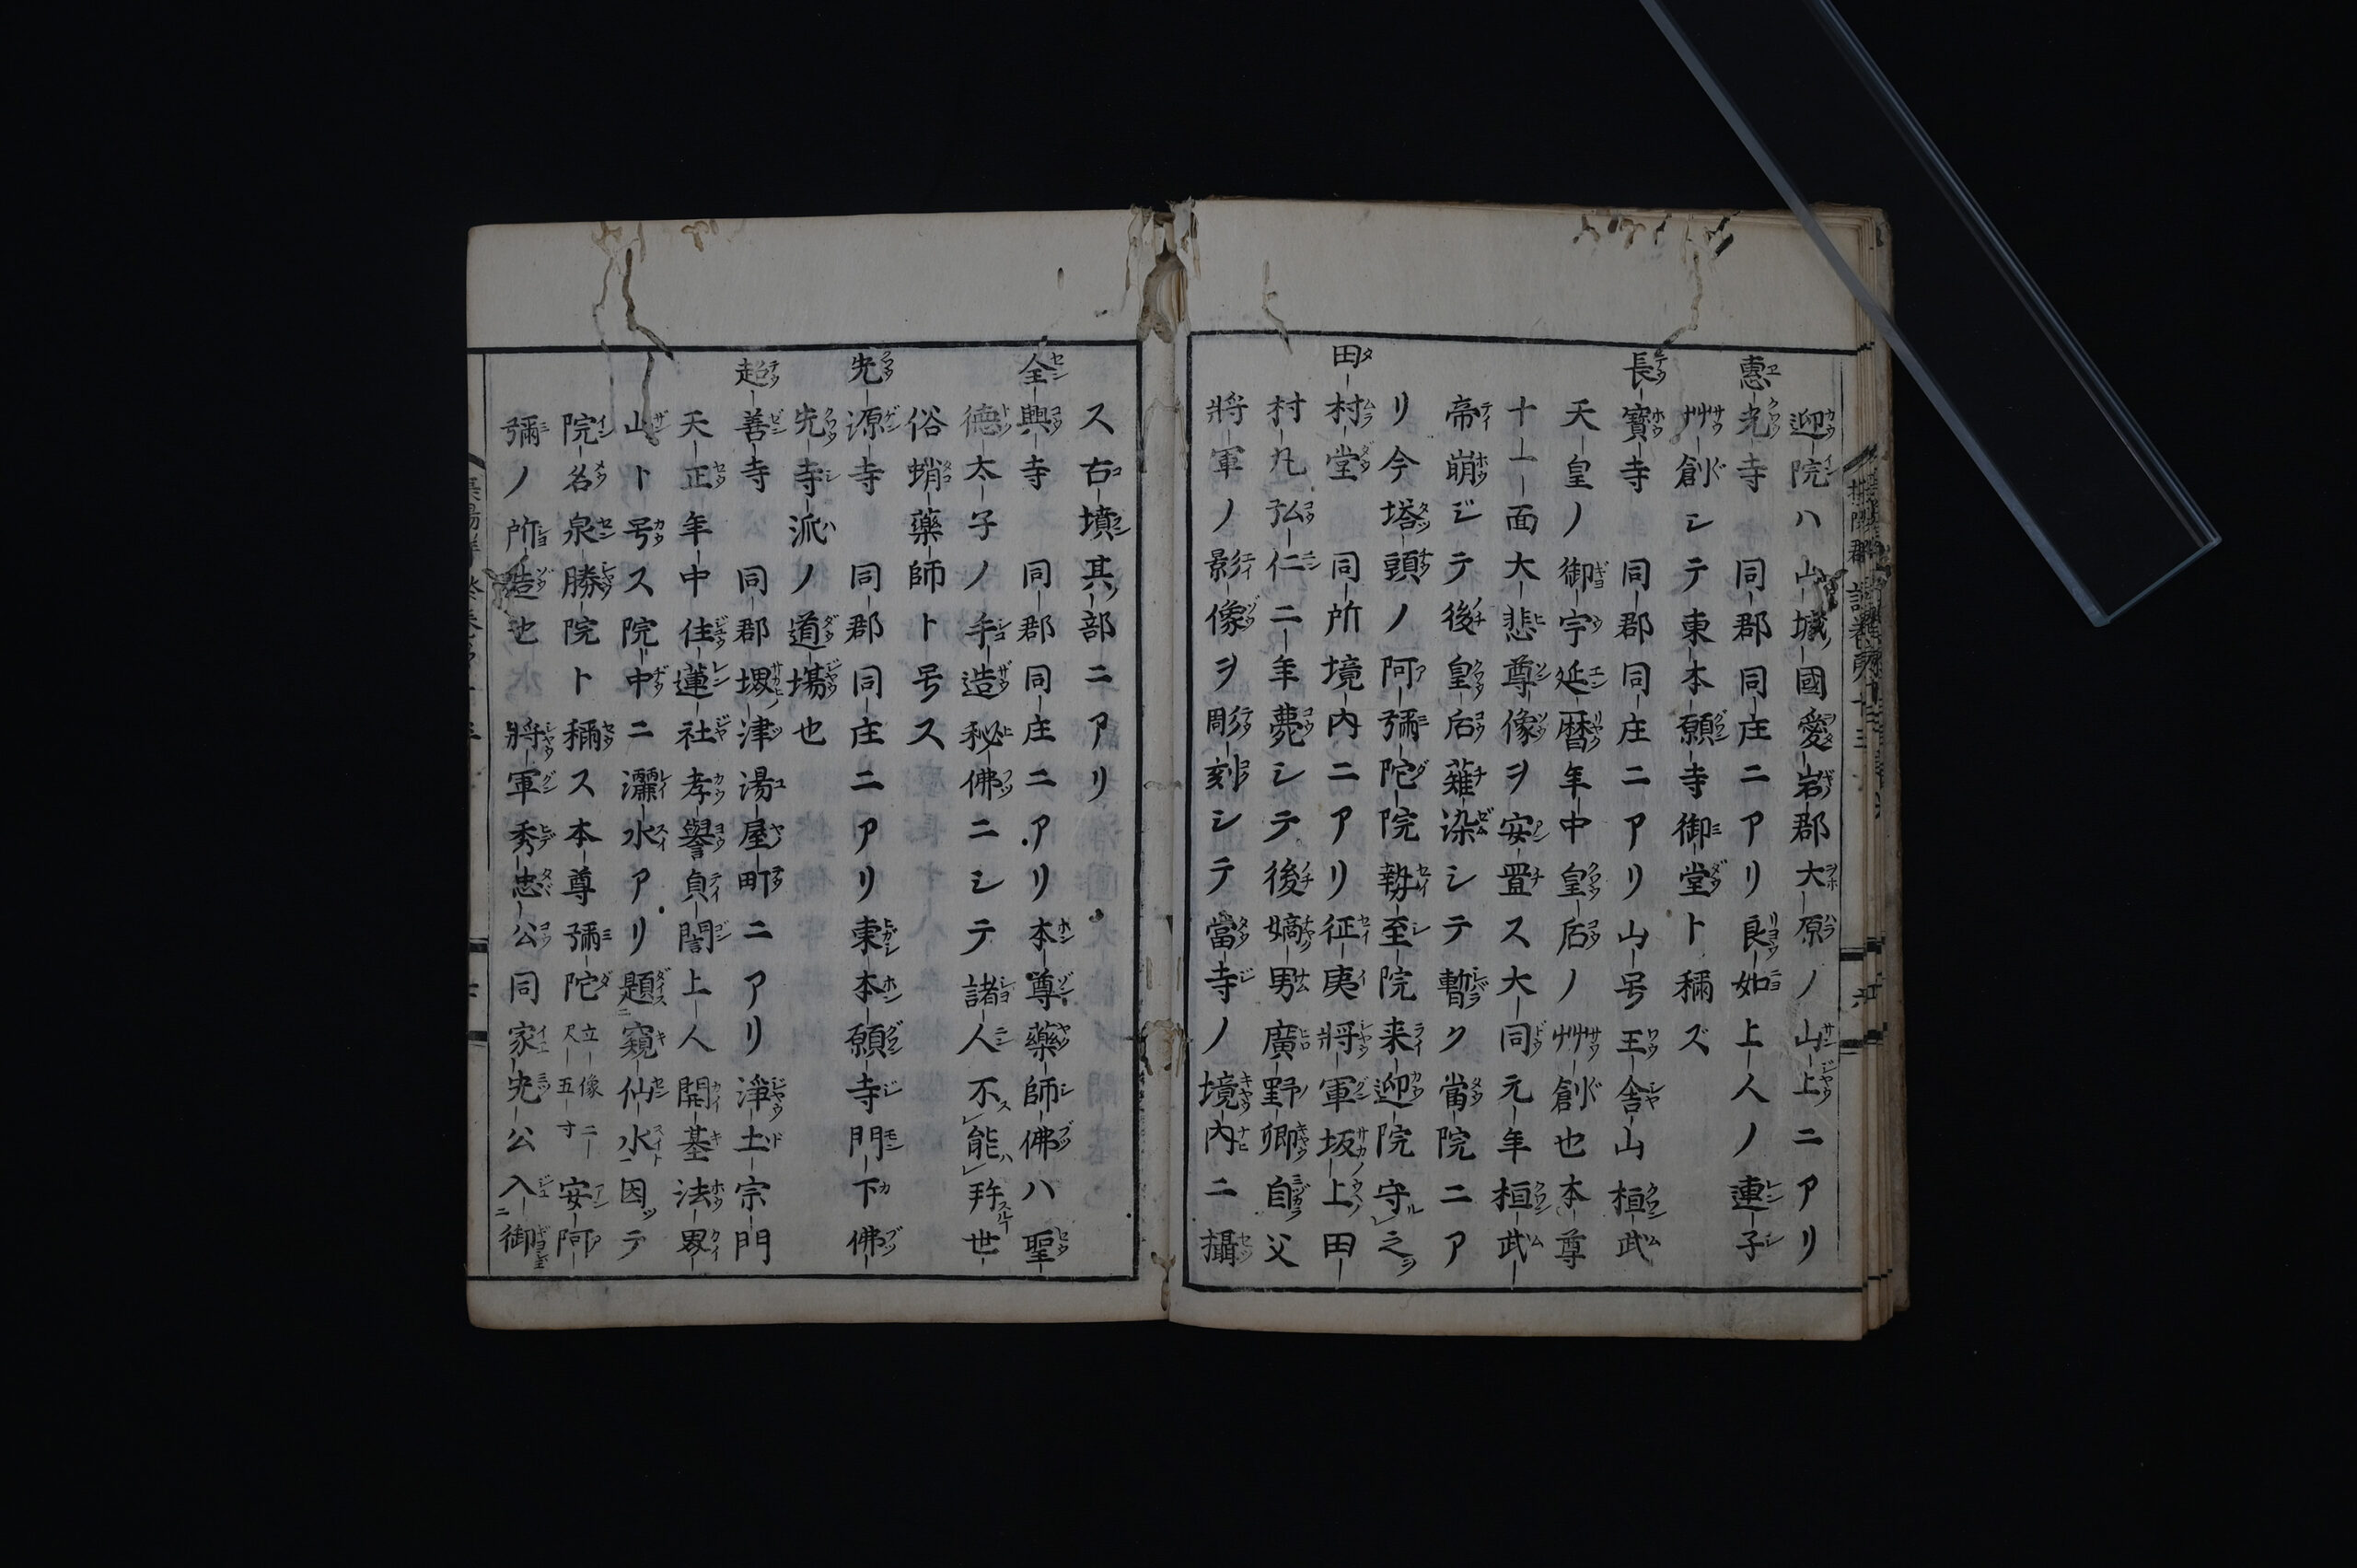 迎院ハ山城國愛宕郡大原ノ山上ニアリ
惠光寺 同郡同庄ニアリ良如上人ノ連子
艸創シテ東本願寺御堂ト稱ズ
長寶寺 同郡同庄ニアリ山号王舎山桓武
天皇ノ御宇延暦年中皇后ノ艸創也本尊
十一面大悲尊像ヲ安置ス大同元年桓武
帝崩ジテ後皇后薙染シテ暫ク當院ニア
リ今塔頭ノ阿彌陀院勢至院来迎院守之
田村堂 同所境内ニアリ征夷將軍坂上田
村丸弘仁二年薨シテ後嫡男廣野卿自父
將軍ノ影像ヲ彫刻シテ當寺ノ境内ニ攝
ス右墳其部ニアリ
全興寺 同郡同庄ニアリ本尊藥師佛ハ聖
德太子ノ手造秘佛ニシテ諸人不能拜世
俗蛸藥師ト号ス
光源寺 同郡同庄ニアリ東本願寺門下佛
光寺派ノ道場也
超善寺 同郡堺津湯屋町ニアリ淨土宗門
天正年中住蓮社孝譽貞誾上人開基法界
山ト号ス院中ニ灑水アリ題窺仙水因テ
院名泉勝院ト稱ス本尊彌陀立像二尺五寸安阿
彌ノ所造也 將軍秀忠公同家光公入御